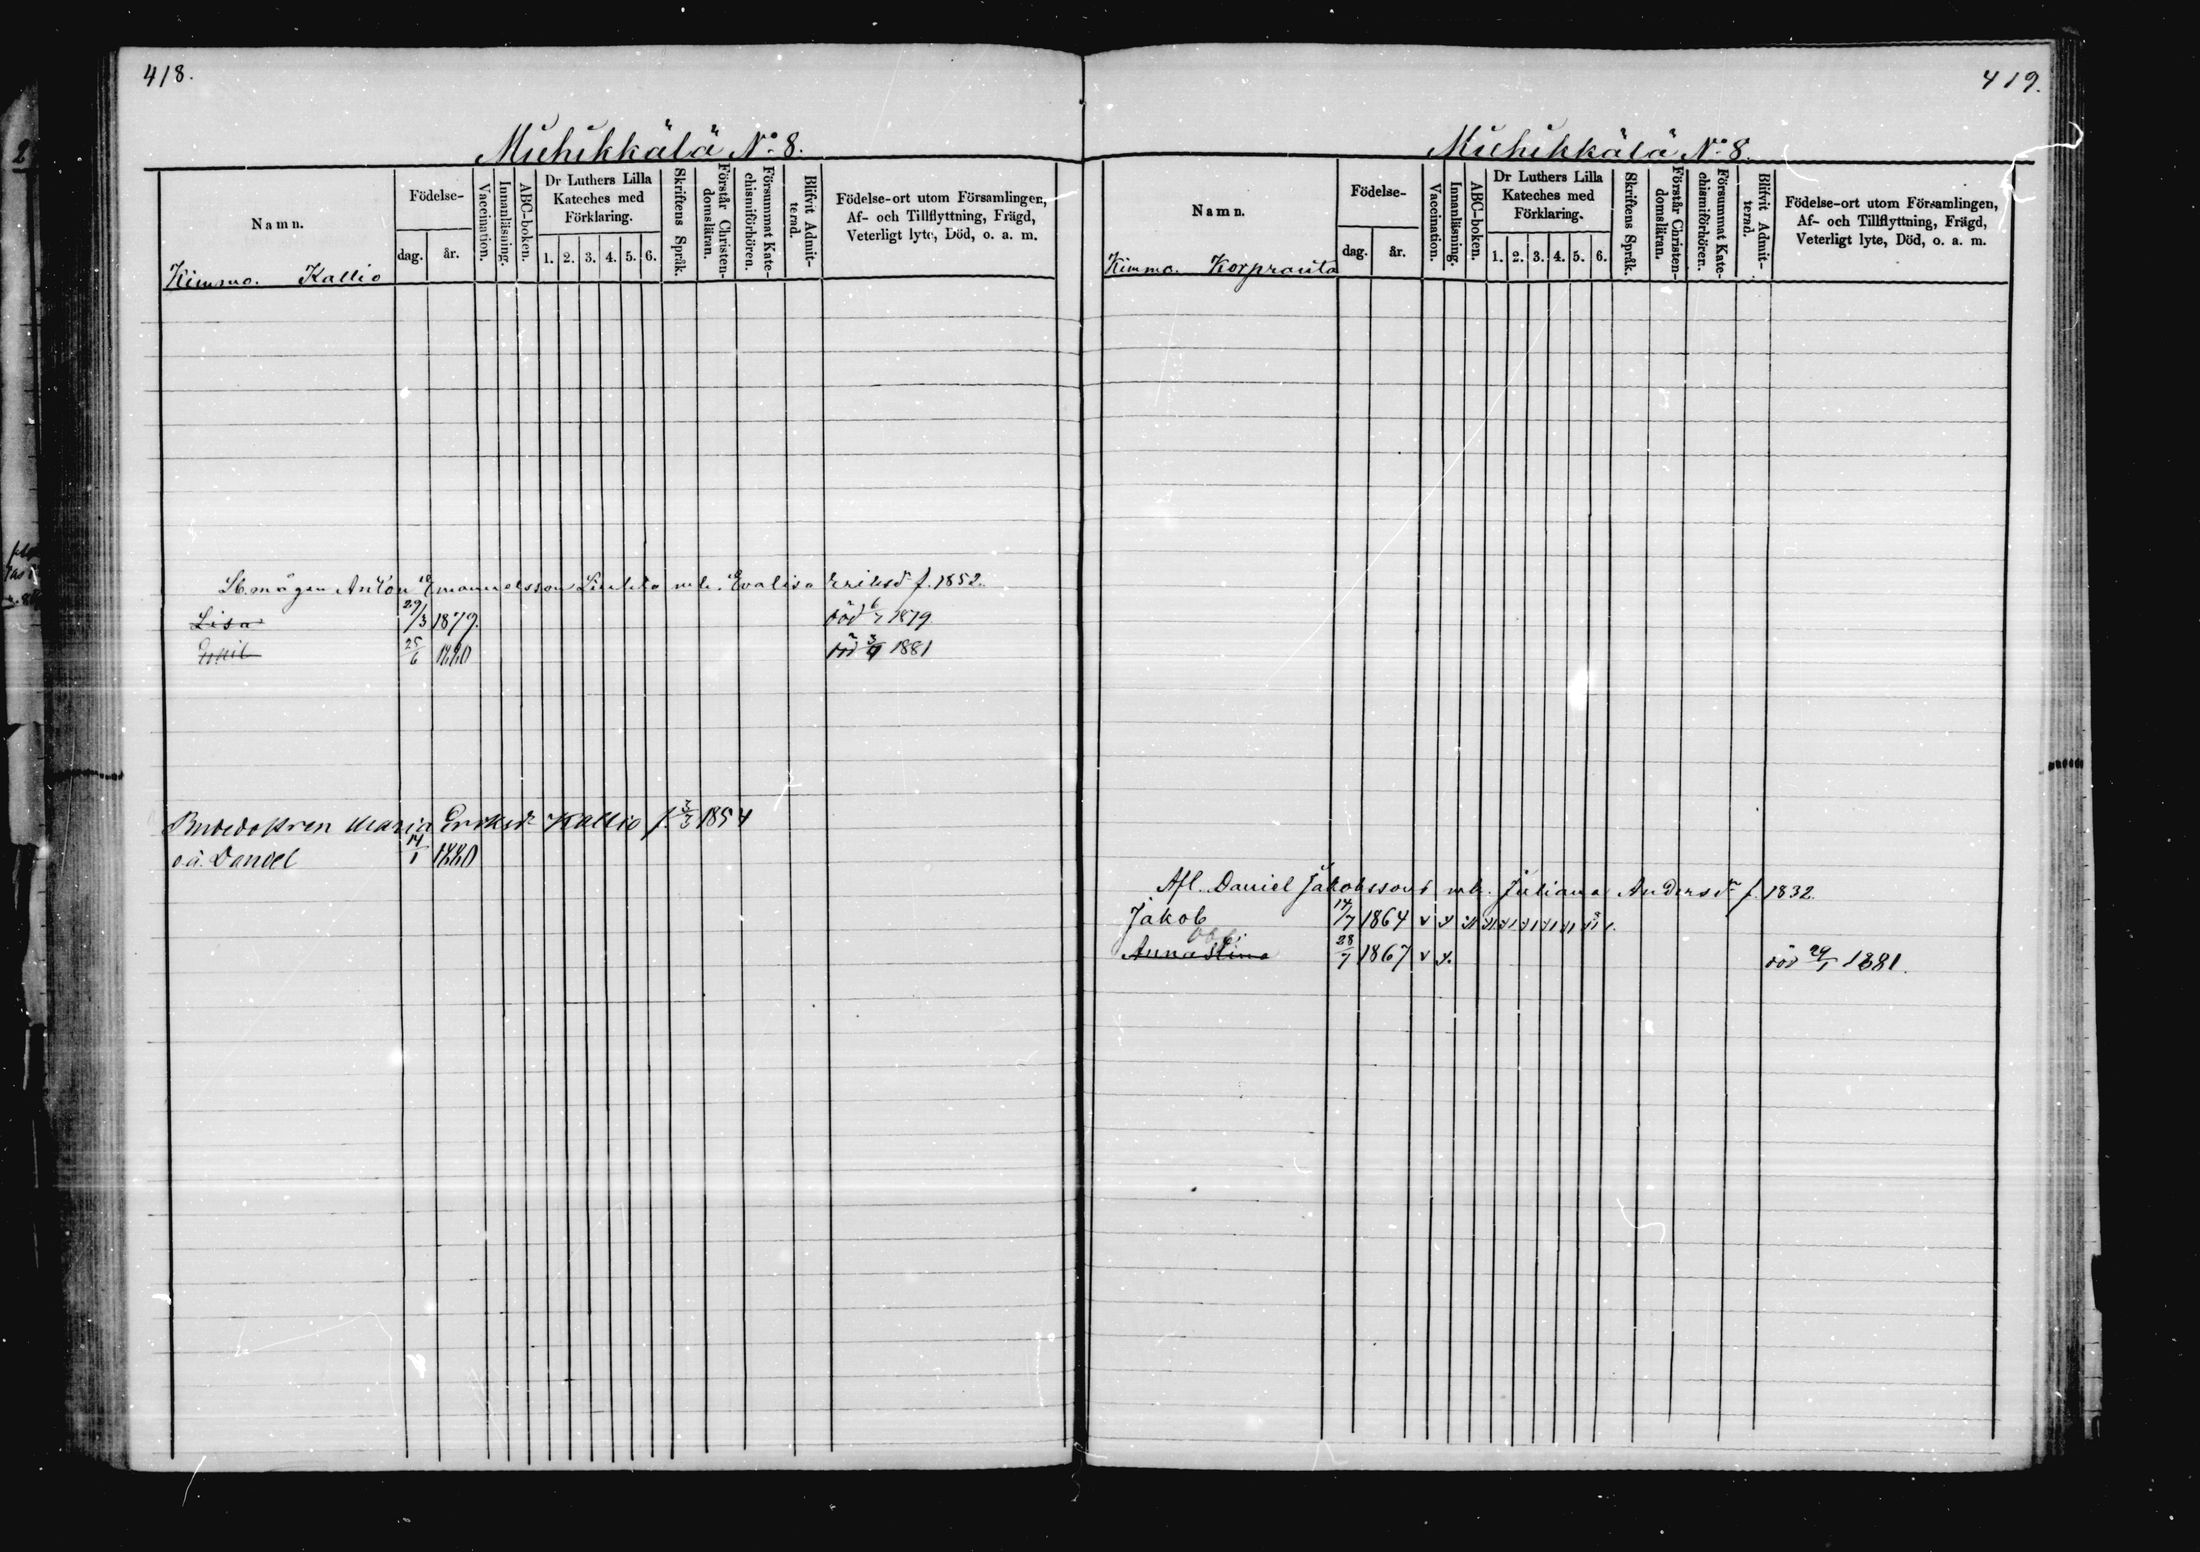 418.
Miehikkälä No 8.
Namn.
Födelse-
dag.
år.
Vaccination.
Innanläsning.
ABC-boken.
Dr Luthers Lilla
Kateches med
Förklaring.
1. 2. 3. 4. 5. 6.
Skriftens Språk.
Förstår Christen-
domsläran.
Försummat Kate-
chismiförhören.
Blifvit Admit-
terad.
Födelse-ort utom Församlingen,
Af- och Tillflyttning, Frägd,
Veterligt lyte, Död, o. a. m.
Kimmo. Kallio
mågen Anton Emanuelsson h. Evalisa Eriksdr f. 1852.
Lisa 29/3 1879. död 6/7 1879
Emil 25/6 1880 död 3/4 1881
Maria Eriksdr Kallio f. 3/3 1854
oä. Daniel 14/1 1880
419.
Miehikkälä No 8.
Namn.
Födelse-
dag.
år.
Vaccination.
Innanläsning.
ABC-boken.
Dr Luthers Lilla
Kateches med
Förklaring.
1. 2. 3. 4. 5. 6.
Skriftens Språk.
Förstår Christen-
domsläran.
Försummat Kate-
chismiförhören.
Blifvit Admit-
terad.
Födelse-ort utom Församlingen,
Af- och Tillflyttning, Frägd,
Veterligt lyte, Död, o. a. m.
Kimmo. Korprauta
Afl. Daniel Jakobssons h. Juliana Andersdr f. 1832.
Jakob 14/7 1864 v
Anna Stina 28/7 1867 v död 29/1 1881.